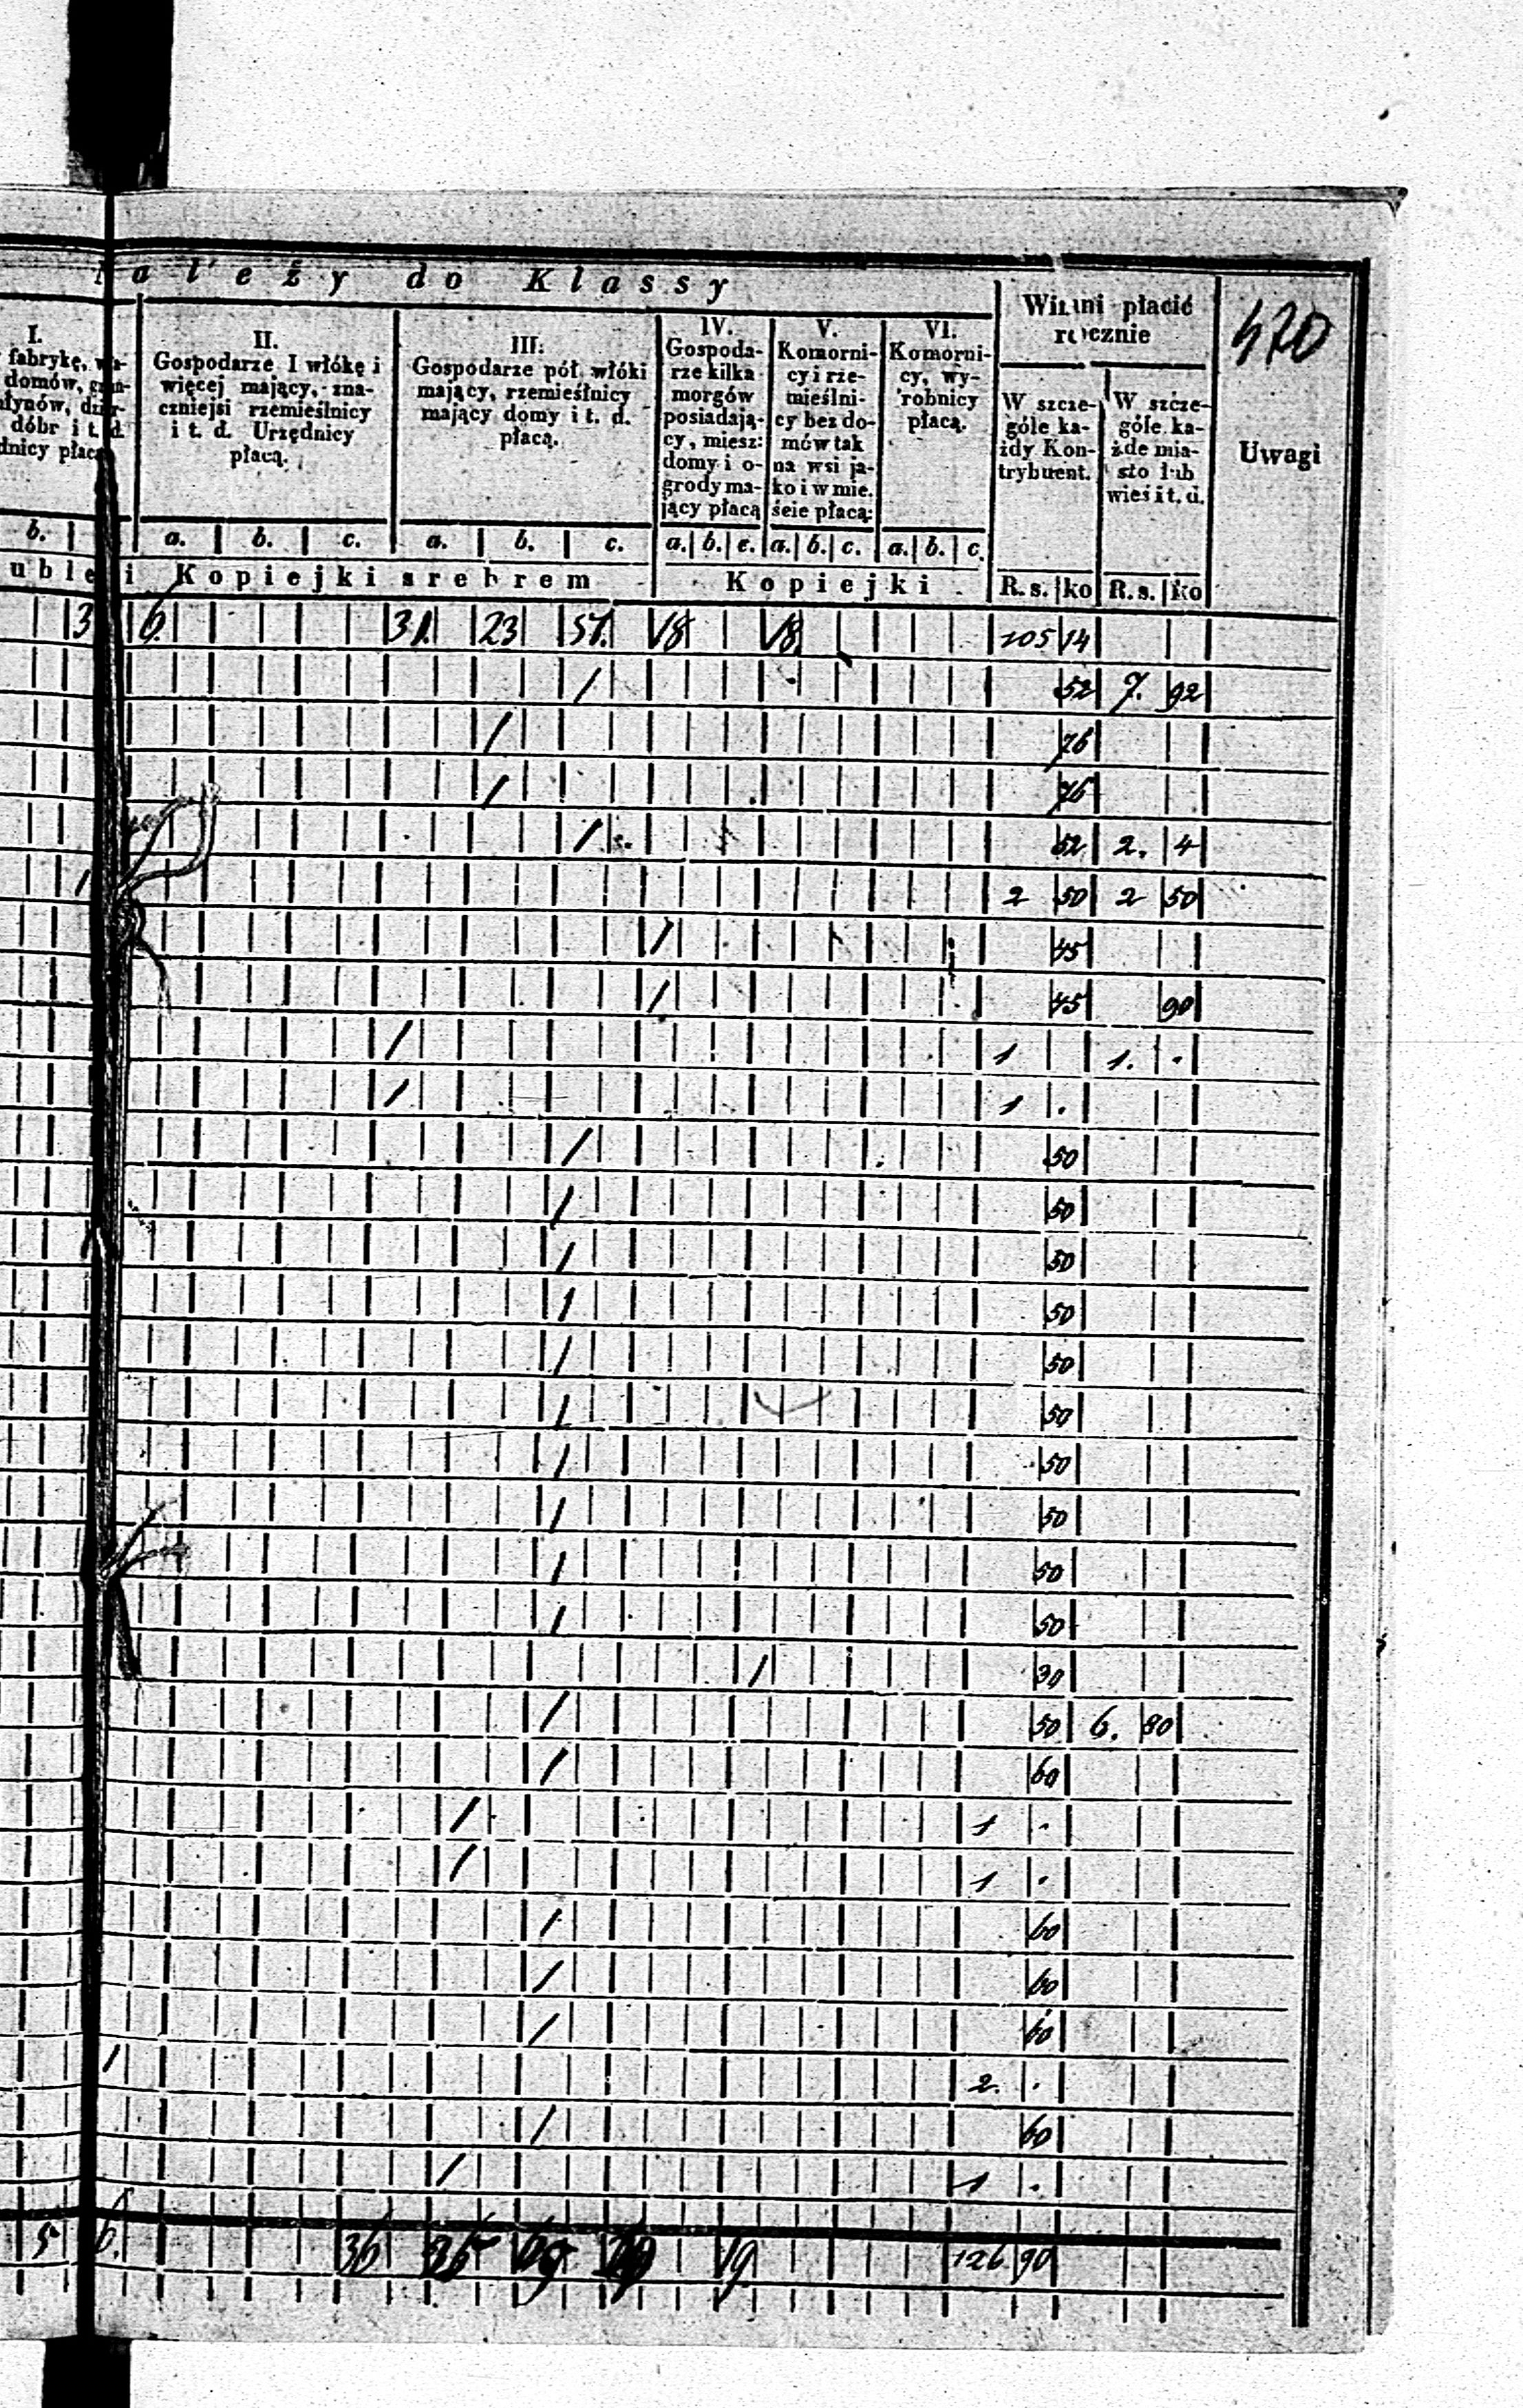 Należy do Klassy
I.
fabrykę,
domów,
dóbr i t. d.
II.
Gospodarze I włókę i
więcej mający, zna-
czniejsi rzemieślnicy
i t. d. Urzędnicy
płacą.
III.
Gospodarze pół włóki
mający, rzemieślnicy
mający domy i t. d.
płacą.
IV.
Gospoda-
rze kilka
morgów
posiadają-
cy, miesz:
domy i o-
grody ma-
jący płacą
V.
Komorni-
cy i rze-
mieślni-
cy bez do-
mów tak
na wsi ja-
ko i w mie.
ście płacą:
VI.
Komorni-
cy, wy-
robnicy
płacą.
Winni płacić
rocznie
W szcze-
góle ka-
żdy Kon-
trybuent.
W szcze-
góle ka-
żde mia-
sto lub
wieś i t. d.
470
Uwagi
b. a. b. c. a. b. c. a. b. c. a. b. c. a. b. c.
i Kopiejki srebrem Kopiejki R. s. ko R. s. ko
3 6. 31. 23 57. 18 18 105 14
/ 52 7. 92
/ 76
/ 76
/ 52 2. 4
/ 2 50 2 50
/ 45
/ 45 90
/ 1 1. .
/ 1 .
/ 50
/ 50
/ 50
/ 50
/ 50
/ 50
/ 50
/ 50
/ 50
/ 50
/ 30
/ 50 6. 80
/ 60
/ 1 .
/ 1 .
/ 60
/ 60
/ 60
/ 2. .
/ 60
/ 1 .
5 6. 36 25 19 126 90